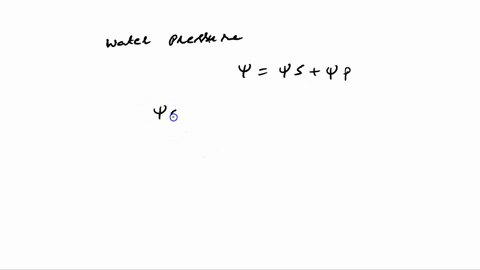 water pressure
Ψ = ΨS + ΨP
Ψ